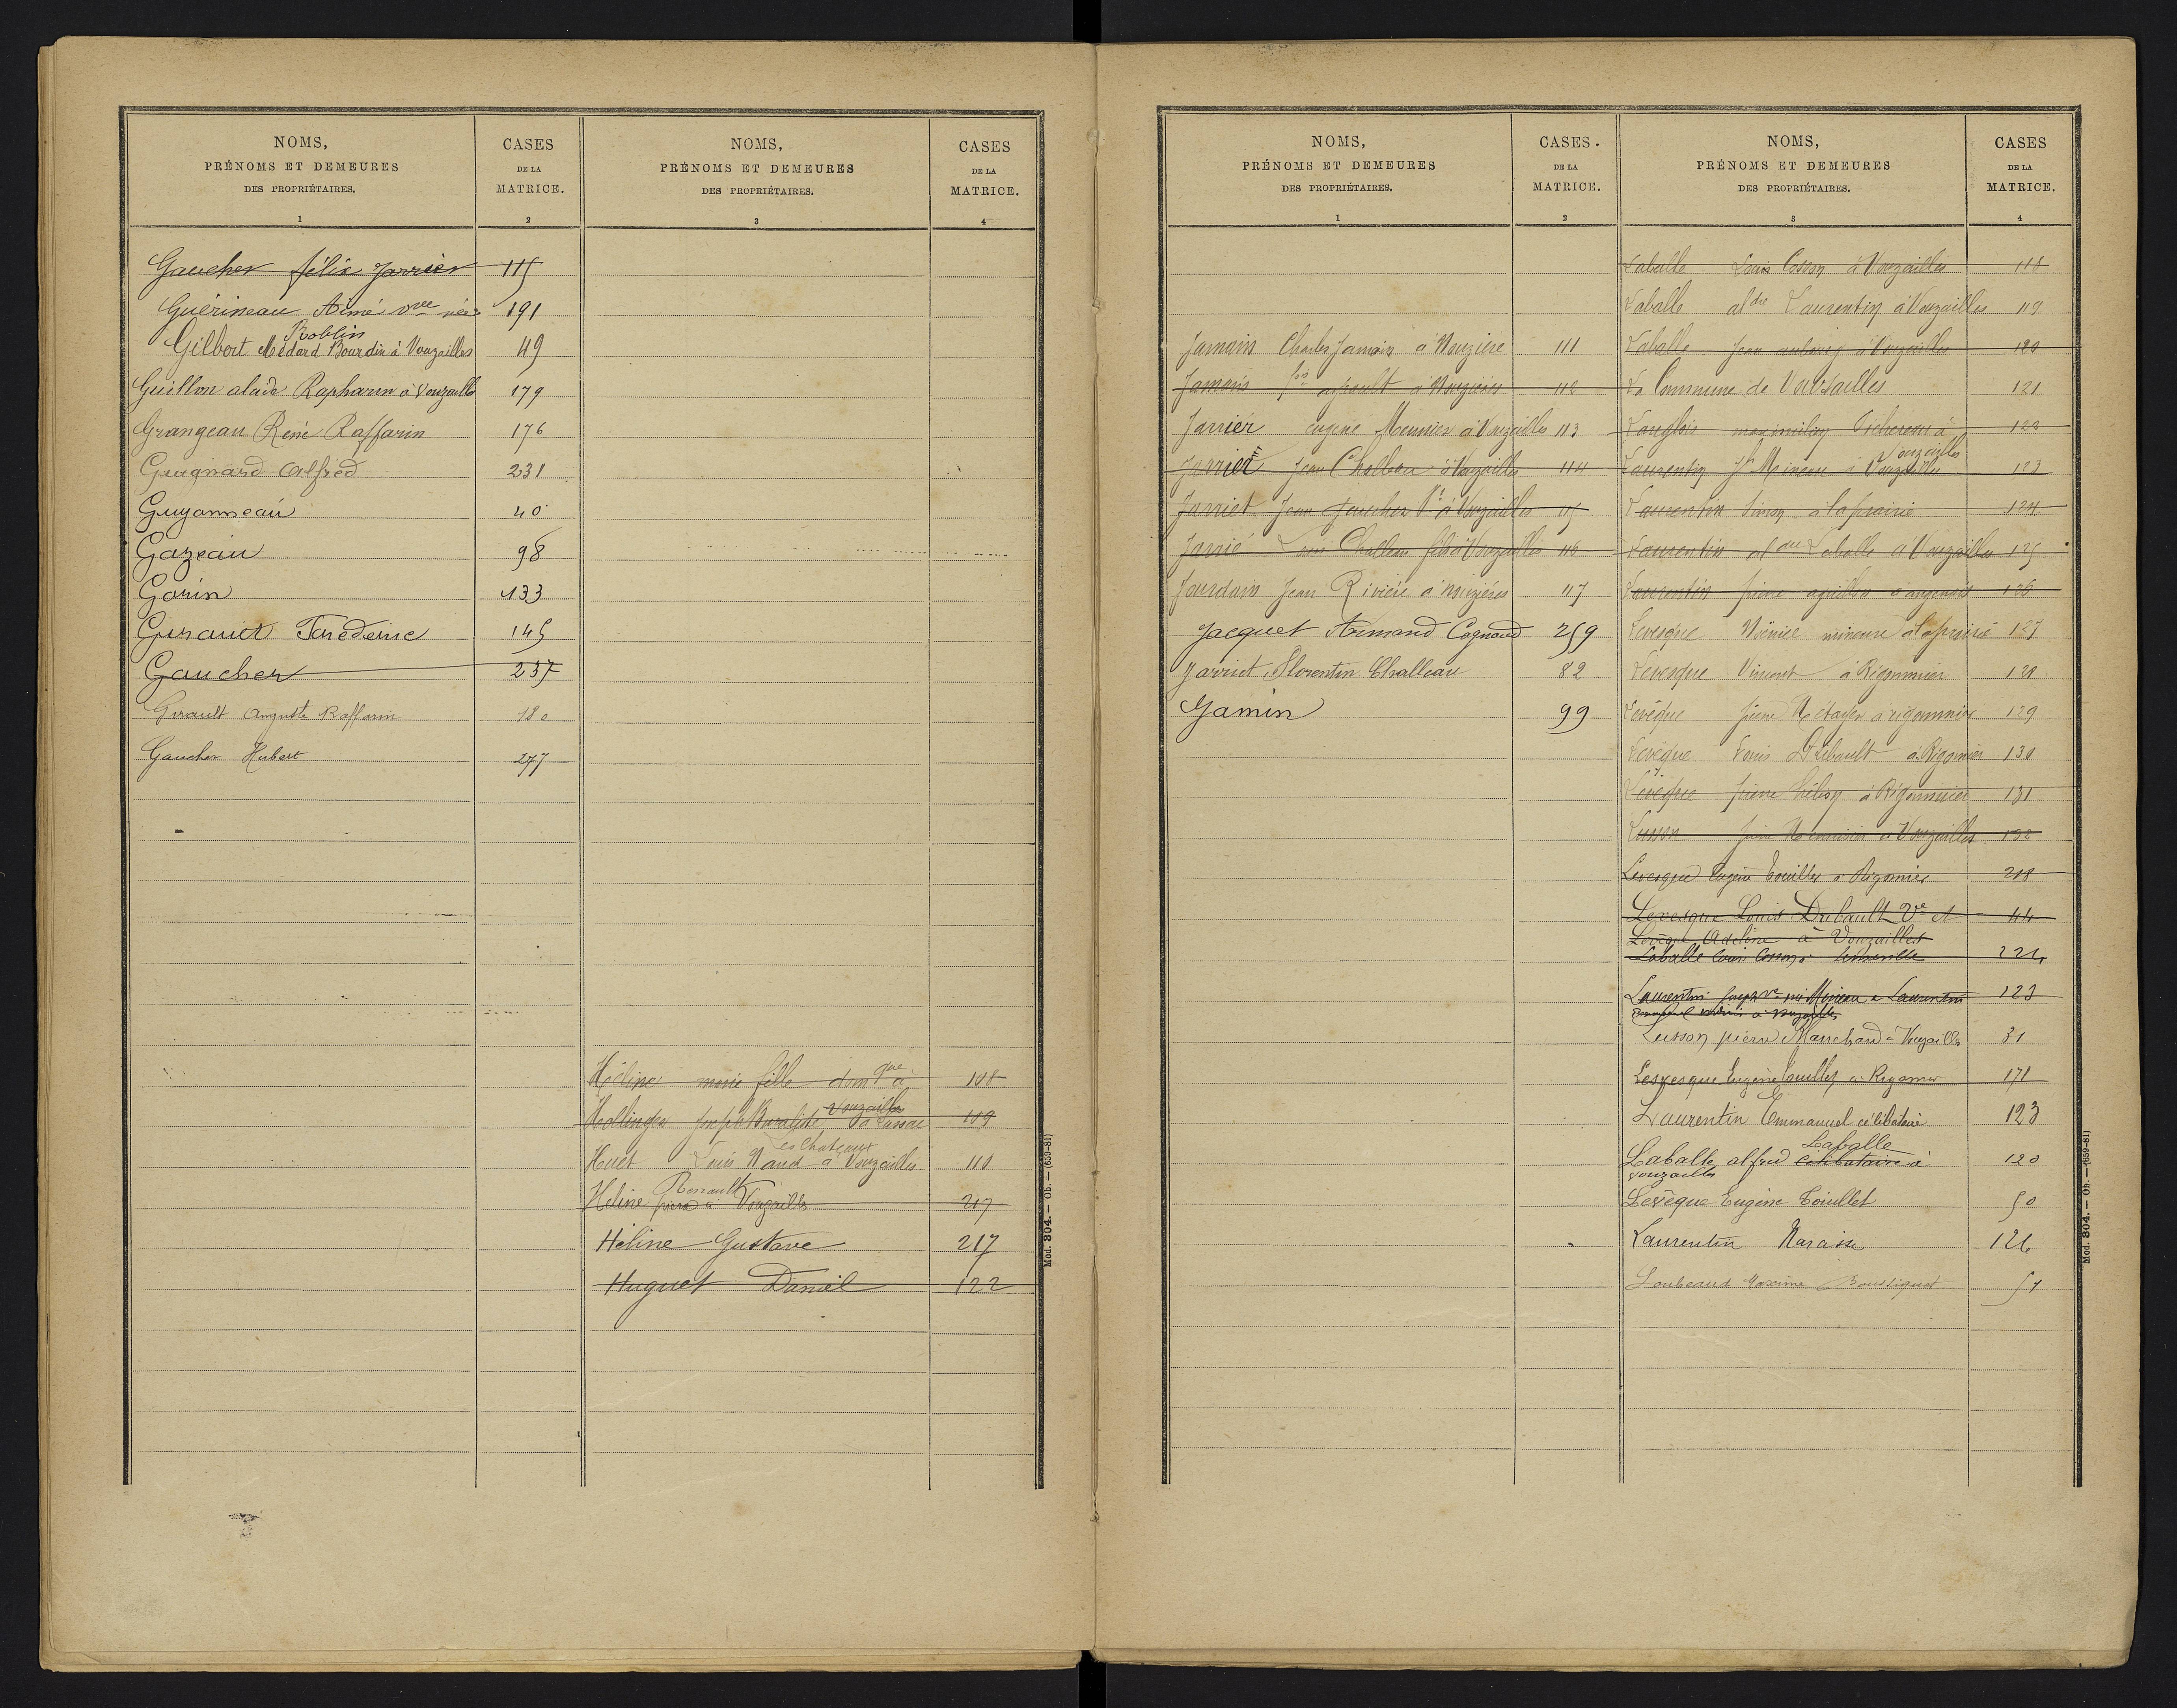 NOMS,
PRÉNOMS ET DEMEURES
DES PROPRIÉTAIRES.
1
CASES
DE LA
MATRICE.
2
NOMS,
PRÉNOMS ET DEMEURES
DES PROPRIÉTAIRES.
3
CASES
DE LA
MATRICE.
4
Gaucher félix Jarrier 115
Guérineau Aimé vve née 191
Roblin
Gilbert Médard Bourdin à Vouzailles 49
Guillon alaide Rapharin à Vouzailles 179
Grangeau René Raffarin 176
Guignard Alfred 231
Guyonneau 40
Gazeau 98
Gorin 133
Girault 145
Gaucher 237
Girault Auguste Raffarin 180
Gaucher Hubert 277
Héline marie fille domque à 108
Vouzailles
Hollinger joseph Buraliste à 109
Les Chateaux
Huet Louis Naud à Vouzailles 110
Renault
Héline pierre à Vouzailles 217
Héline Gustave 217
Huguet Daniel 122
Mod. 804. — Ob. — (659-81)
NOMS,
PRÉNOMS ET DEMEURES
DES PROPRIÉTAIRES.
1
CASES.
DE LA
MATRICE.
2
NOMS,
PRÉNOMS ET DEMEURES
DES PROPRIÉTAIRES.
3
CASES
DE LA
MATRICE.
4
Jamain Charles Jamain à 111
Jamain fois à 112
Jarrier eugene Meunier à Vouzailles 113
Jarriet Jean Challeau à Vouzailles 114
Jarriet Jean Gaucher Ve à Vouzailles 115
Jarrié Louis Challeau fils à Vouzailles 116
Jourdain Jean Rivière à 117
Jacquet Armand Cognaud 259
Jarriet Florentin Challeau 82
Jamin 99
Laballe Louis Cosson à Vouzailles 118
Laballe aldre Laurentin à Vouzailles 119
Laballe Jean à Vouzailles 120
La Commune de Vouzailles 121
Langlois à 122
Vouzailles
Laurentin Jh Mineau à Vouzailles 123
Laurentin Simon à la prairie 124
Laurentin aldre Laballe à Vouzailles 125
Laurentin pierre à 126
Levesque mineure à la prairie 127
Levesque Vincent à Rigommier 128
Levêque pierre Métayer à rigommier 129
Levêque Louis Dribault à Rigomier 130
Levêque pierre héline à Rigommier 131
Lusson pierre à Vouzailles 132
Levesque Eugène Touillet à Rigomier 218
Levesque Louis Dribault Ve et 44
Levêque Adeline à Vouzailles
Laballe Louis Cosson 221
Laurentin joseph ve née Mineau et Laurentin 123
à Vouzailles
Lusson pierre Marchand à Vouzailles 31
Levesque Eugène Touillet à Rigomier 171
Laurentin Emmanuel célibataire 123
Laballe
Laballe alfred célibataire à 120
vouzailles
Levêque Eugène Touillet 50
Laurentin Narcisse 126
Loubeaud Maxime 57
Mod. 804. — Ob. — (659-81)